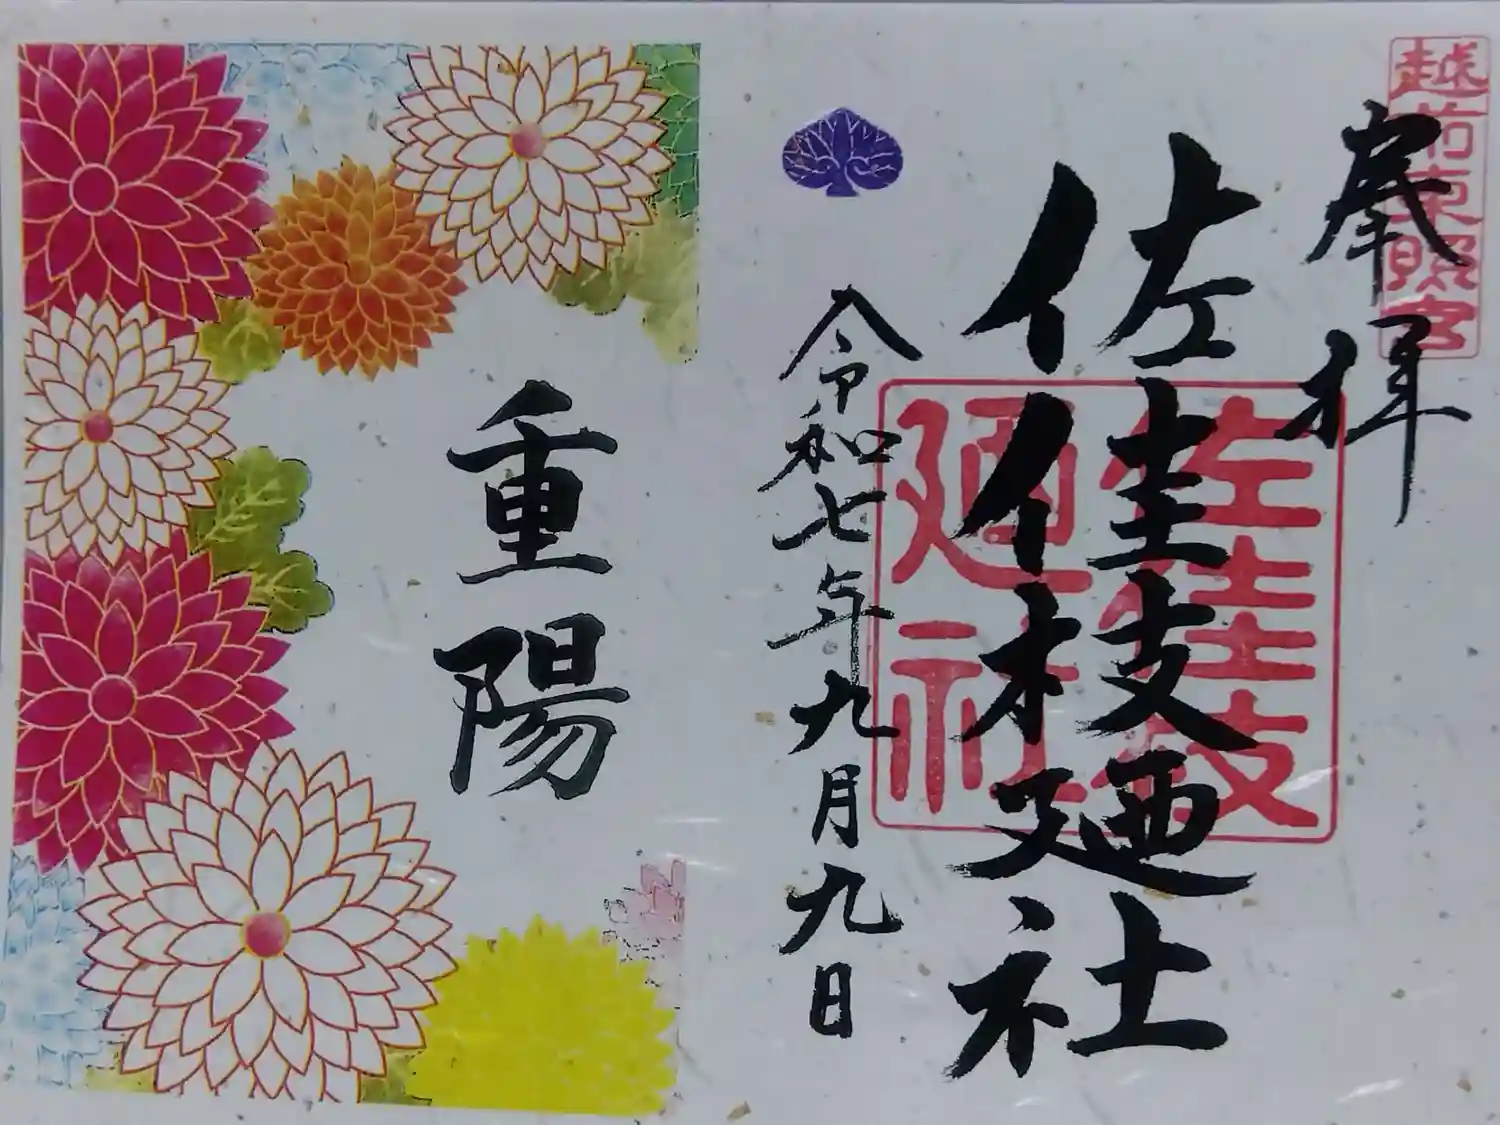 奉拝
越前東照宮
佐佳枝廼社
佐佳枝
廼社
令和七年九月九日
重陽